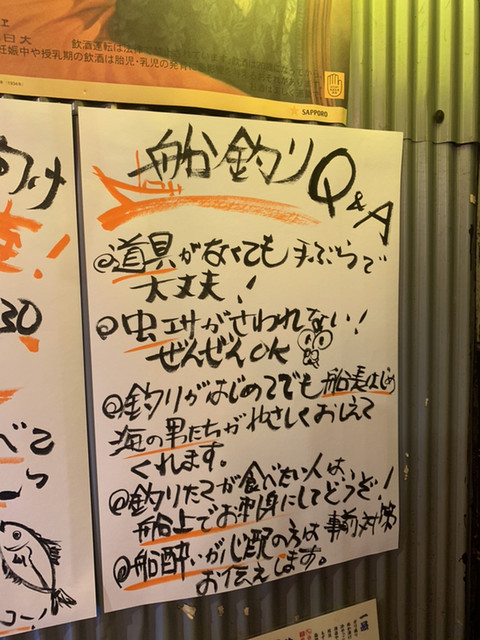 飲酒運転は法律で禁止されています。
妊娠中や授乳期の飲酒は胎児・乳児の発育
SAPPORO
船釣りQ&A
◎道具がなくても手ぶらで
大丈夫!
◎虫エサがさわれない!
ぜんぜんOK
◎釣りがはじめてでも船長はじめ
海の男たちがやさしくおしえて
くれます。
◎釣りたてが食べたい人は、
船上でお刺身にしてどうぞ!
◎船酔いが心配の方は事前対策
お伝えします。
け
!
30
べこ
コー!